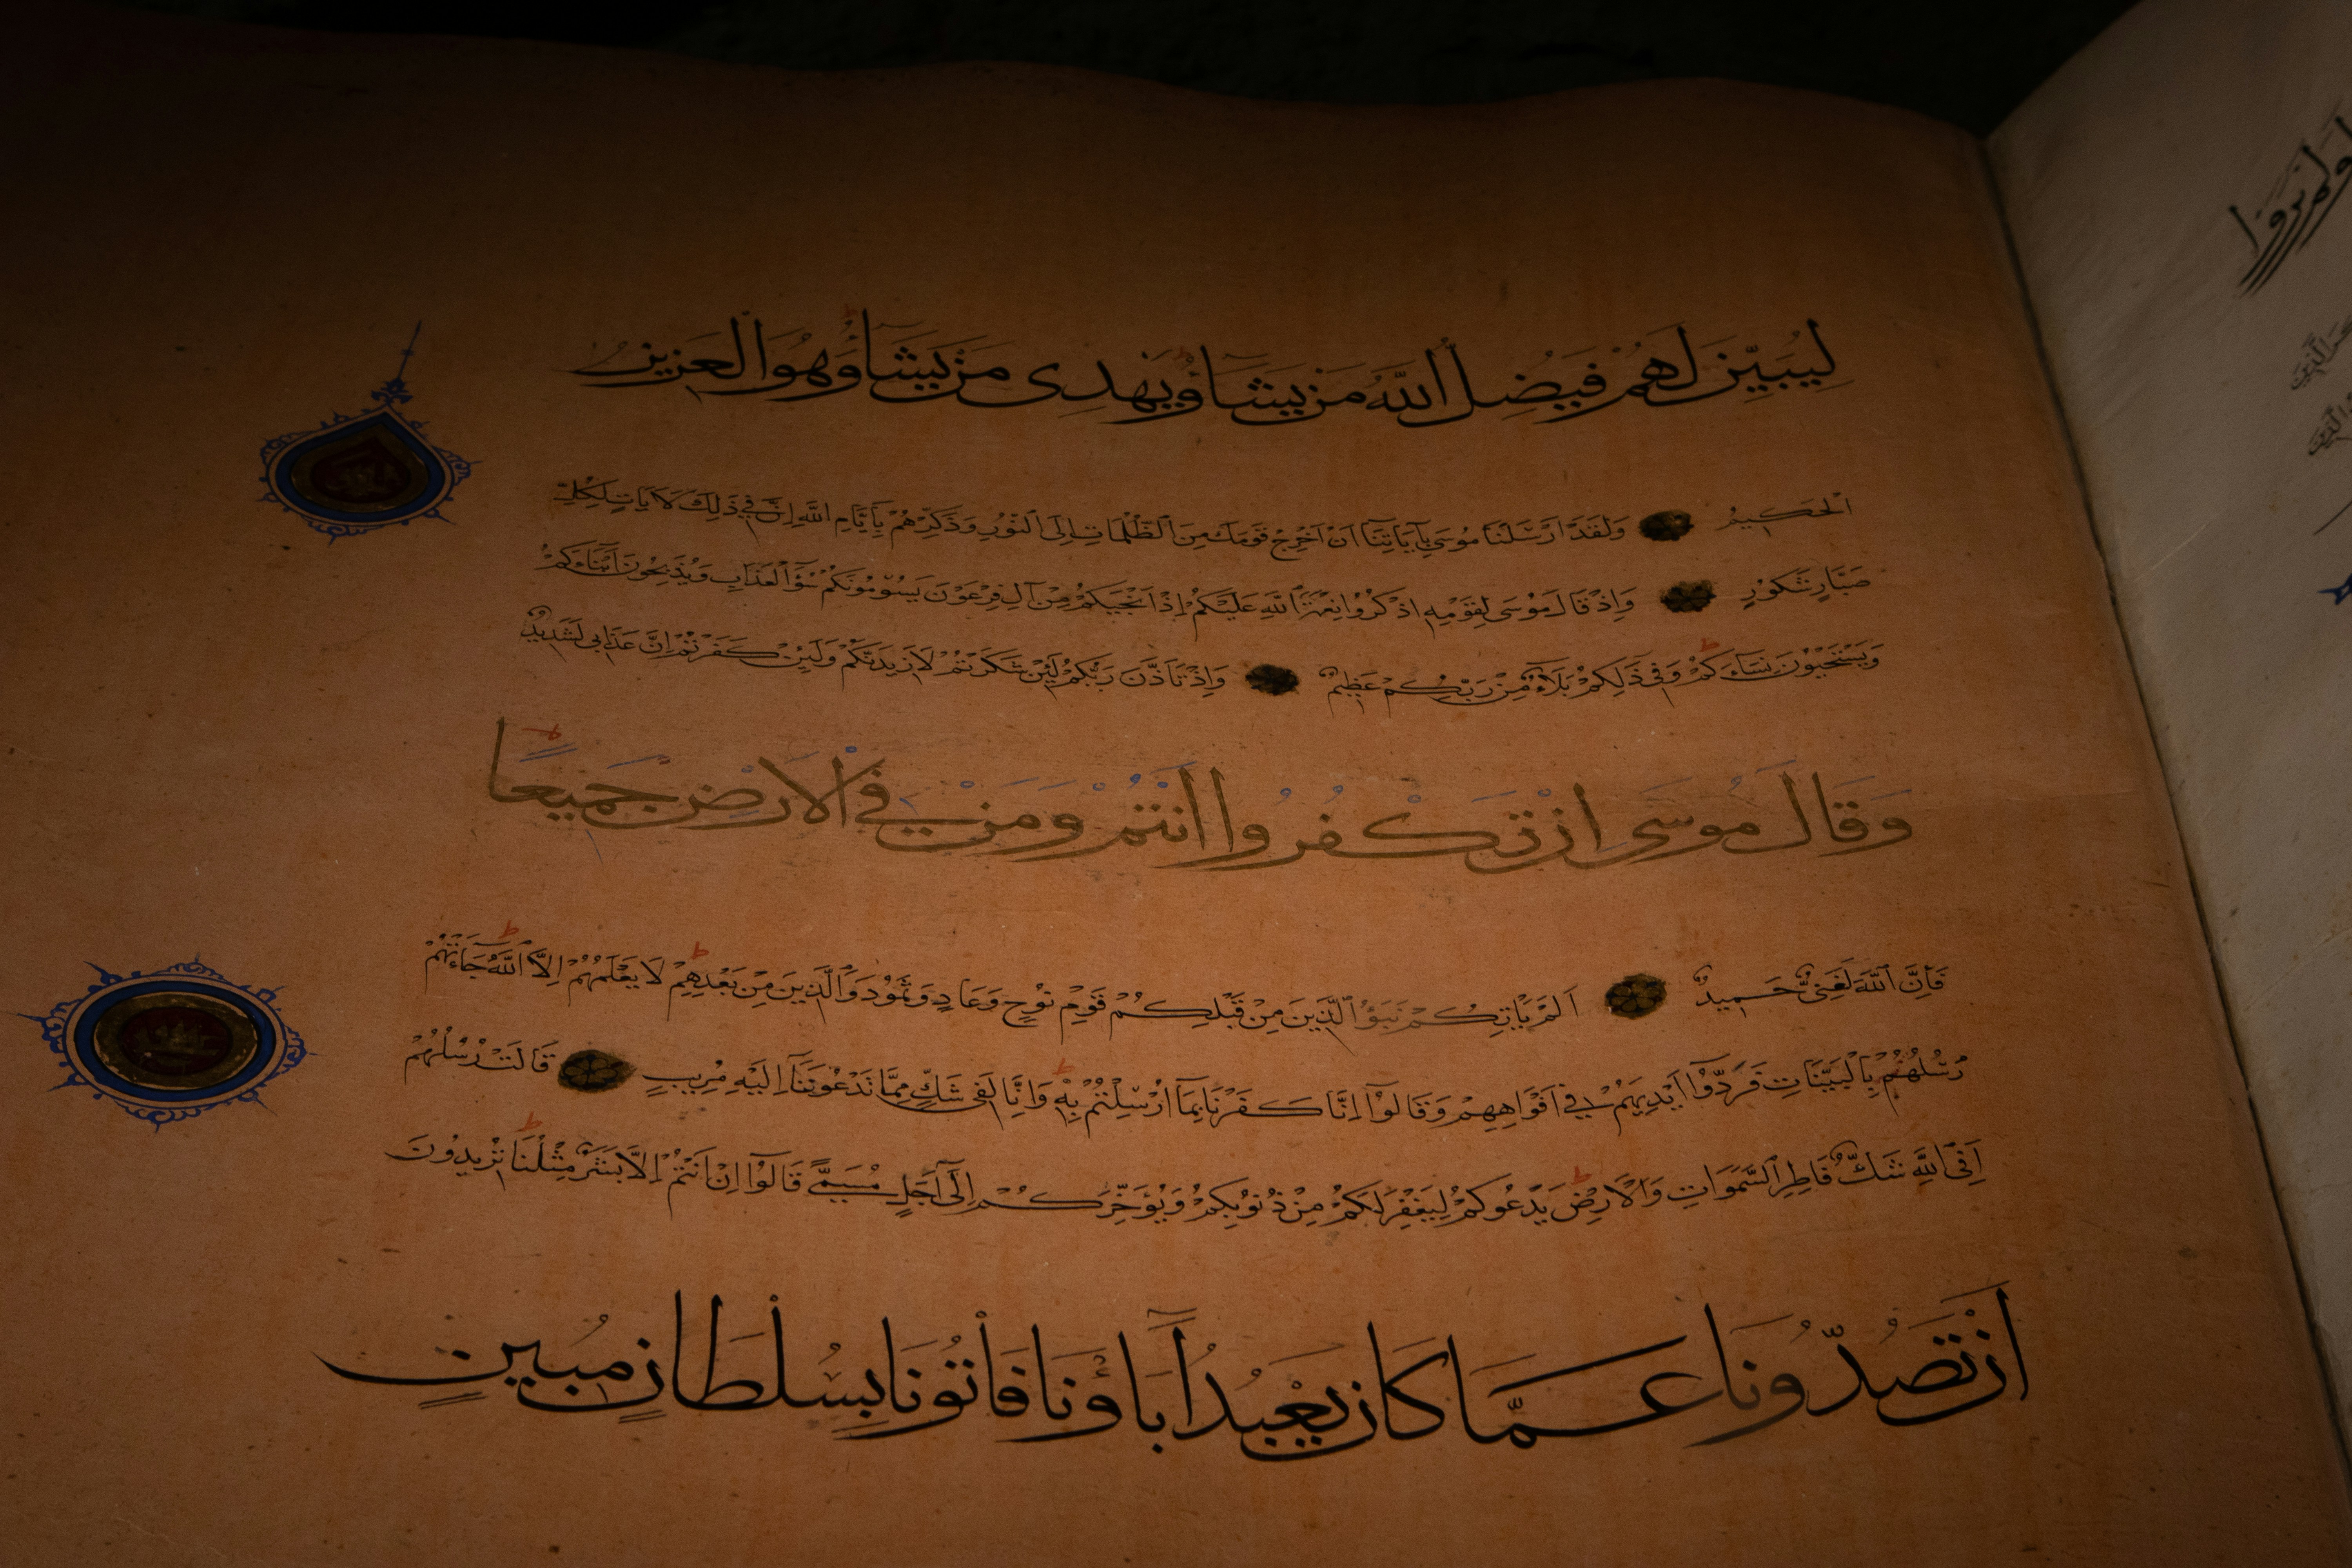 لِيُبَيِّنَ لَهُمْ فَيُضِلُّ اللَّهُ مَنْ يَشَاءُ وَيَهْدِي مَنْ يَشَاءُ وَهُوَ الْعَزِيزُ
الْحَكِيمُ وَلَقَدْ اَرْسَلْنَا مُوسَى بِآيَاتِنَا اَنْ اَخْرِجْ قَوْمَكَ مِنَ الظُّلُمَاتِ اِلَى النُّورِ وَذَكِّرْهُمْ بِاَيَّامِ اللَّهِ اِنَّ فِي ذَلِكَ لَآيَاتٍ لِكُلِّ
صَبَّارٍ شَكُورٍ وَاِذْ قَالَ مُوسَى لِقَوْمِهِ اذْكُرُوا نِعْمَةَ اللَّهِ عَلَيْكُمْ اِذْ اَنْجَيكُمْ مِنْ آلِ فِرْعَوْنَ يَسُومُونَكُمْ سُوءَ الْعَذَابِ وَيُذَبِّحُونَ اَبْنَاءَكُمْ
وَيَسْتَحْيُونَ نِسَاءَكُمْ وَفِي ذَلِكُمْ بَلَاءٌ مِنْ رَبِّكُمْ عَظِيمٌ وَاِذْ تَاَذَّنَ رَبُّكُمْ لَئِنْ شَكَرْتُمْ لَاَزِيدَنَّكُمْ وَلَئِنْ كَفَرْتُمْ اِنَّ عَذَابِي لَشَدِيدٌ
وَقَالَ مُوسَى اِنْ تَكْفُرُوا اَنْتُمْ وَمَنْ فِي الْاَرْضِ جَمِيعًا
فَاِنَّ اللَّهَ لَغَنِيٌّ حَمِيدٌ اَلَمْ يَاْتِكُمْ نَبَؤُا الَّذِينَ مِنْ قَبْلِكُمْ قَوْمِ نُوحٍ وَعَادٍ وَثَمُودَ وَالَّذِينَ مِنْ بَعْدِهِمْ لَا يَعْلَمُهُمْ اِلَّا اللَّهُ جَاءَتْهُمْ
رُسُلُهُمْ بِالْبَيِّنَاتِ فَرَدُّوا اَيْدِيَهُمْ فِي اَفْوَاهِهِمْ وَقَالُوا اِنَّا كَفَرْنَا بِمَا اُرْسِلْتُمْ بِهِ وَاِنَّا لَفِي شَكٍّ مِمَّا تَدْعُونَنَا اِلَيْهِ مُرِيبٍ قَالَتْ رُسُلُهُمْ
اَفِي اللَّهِ شَكٌّ فَاطِرِ السَّمَوَاتِ وَالْاَرْضِ يَدْعُوكُمْ لِيَغْفِرَ لَكُمْ مِنْ ذُنُوبِكُمْ وَيُؤَخِّرَكُمْ اِلَى اَجَلٍ مُسَمًّى قَالُوا اِنْ اَنْتُمْ اِلَّا بَشَرٌ مِثْلُنَا تُرِيدُونَ
اَنْ تَصُدُّونَا عَمَّا كَانَ يَعْبُدُ اٰبَاؤُنَا فَاْتُونَا بِسُلْطَانٍ مُبِينٍ
اَوَلَمْ يَرَوْا